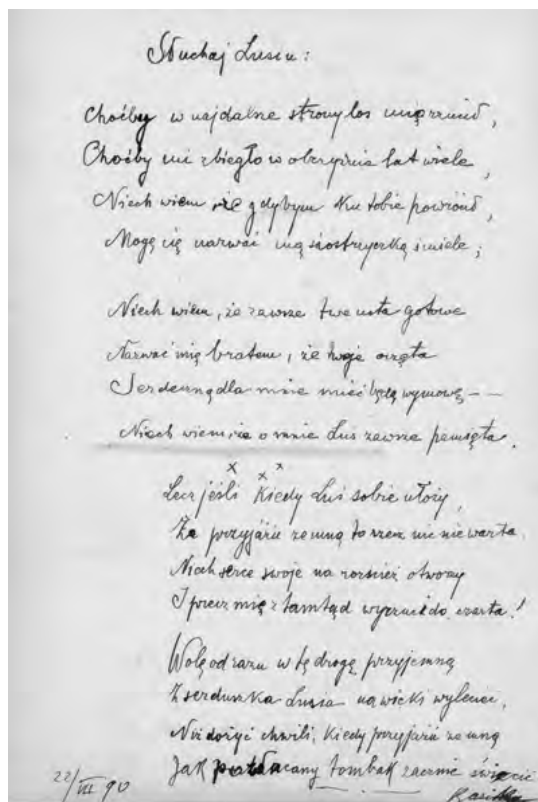 Słuchaj Lusiu:
Choćby w najdalsze strony los mię rzucił,
Choćby mi zbiegło w obczyźnie lat wiele,
Niech wiem że gdybym ku tobie powrócił,
Mogę cię nazwać mą siostrzyczką śmiele;
Niech wiem, że zawsze twe usta gotowe
Nazwać mię bratem, że twoje oczęta
Serdeczną dla mnie mieć będą wymowę - -
Niech wiem, że o mnie Luś zawsze pamięta.
x x x
Lecz jeśli kiedy Luś sobie ułoży,
Że przyjaźń ze mną to rzecz nic nie warta,
Niech serce swoje na rozcież otworzy
I precz mię z tamtąd wyrzuci do czarta!
Wolę od razu w tę drogę przyjemną
Z serduszka Lusia na wieki wylecieć,
Niż dożyć chwili, kiedy przyjaźń ze mną
Jak pozłacany tombak zacznie świecić
22/III 90